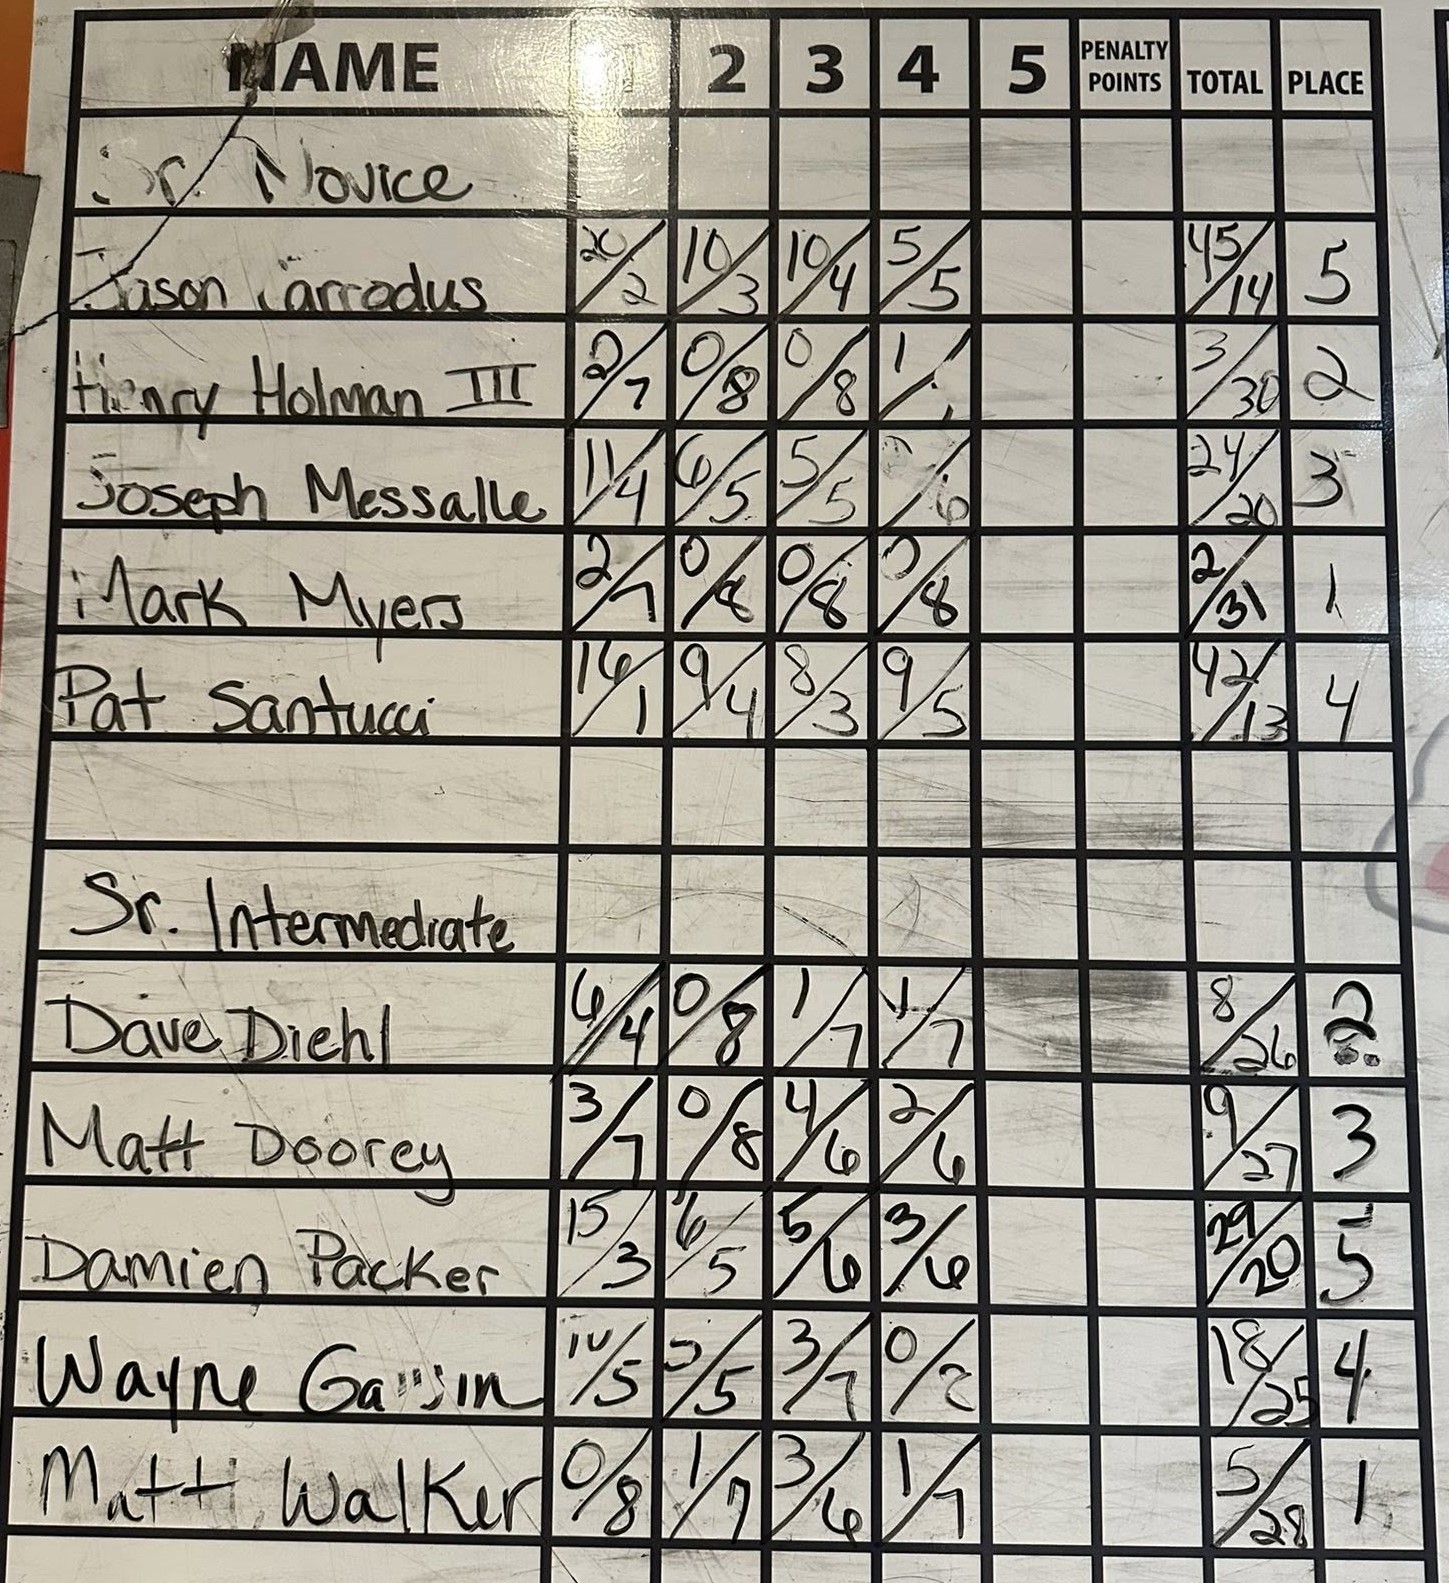 NAME 1 2 3 4 5 PENALTY POINTS TOTAL PLACE
Sr. Novice
Jason Carrodus 20/2 10/3 10/4 5/5 45/14 5
Henry Holman III 2/7 0/8 0/8 1/ 3/30 2
Joseph Messalle 11/4 6/5 5/5 /6 24/20 3
Mark Myers 2/7 0/8 0/8 0/8 2/31 1
Pat Santucci 16/1 9/4 8/3 9/5 42/13 4
Sr. Intermediate
Dave Diehl 6/4 0/8 1/7 1/7 8/26 2
Matt Doorey 3/7 0/8 4/6 2/6 9/27 3
Damien Packer 15/3 6/5 5/6 3/6 29/20 5
Wayne 10/5 5/5 3/7 0/8 18/25 4
Matt Walker 0/8 1/7 3/6 1/7 5/28 1